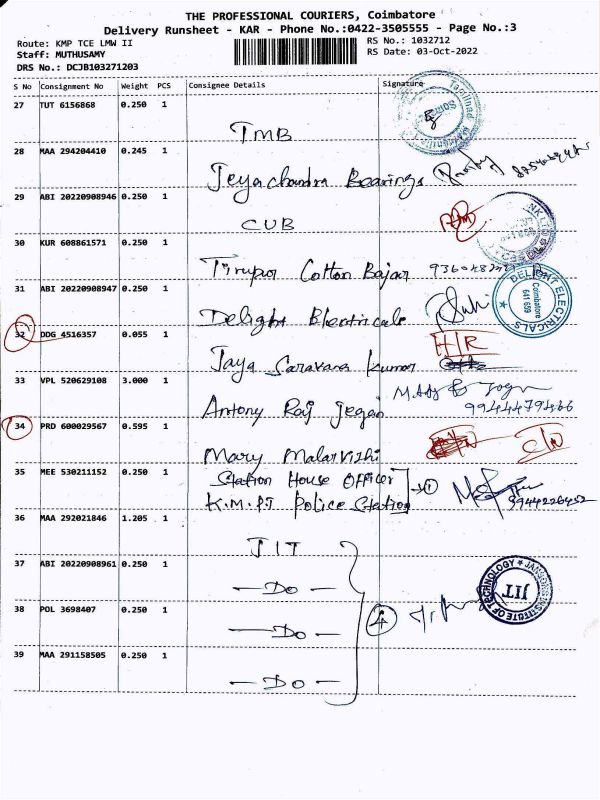 THE PROFESSIONAL COURIERS, Coimbatore
Delivery Runsheet - KAR - Phone No.:0422-3505555 - Page No.:3
Route: KMP TCE LMW II
RS No.: 1032712
Staff: MUTHUSAMY
RS Date: 03-Oct-2022
DRS No.: DCJB103271203
S No Consignment No Weight PCS Consignee Details Signature
27 TUT 6156868 0.250 1
TMB
28 MAA 294204410 0.245 1
Jeyachandra Bearings
29 ABI 20220908946 0.250 1
CUB
30 KUR 608861571 0.250 1
Tirupur Cotton Bajar
31 ABI 20220908947 0.250 1
Delight Electricals
DELIGHT ELECTRICALS
Coimbatore
641 659
32 DDG 4516357 0.055 1
H/R
Jaya Saravana Kumar
33 VPL 520629108 3.000 1
Antony Raj Jegan
9944479466
34 PRD 600029567 0.595 1
Mary Malarvizhi
35 MEE 530211152 0.250 1
Station House Officer
K.M.PT Police Station
→ 1
9944226452
36 MAA 292021846 1.205 1
JIT
37 ABI 20220908961 0.250 1
— Do —
INSTITUTE OF TECHNOLOGY
JIT
38 POL 3698407 0.250 1
4
— Do —
39 MAA 291158505 0.250 1
— Do —